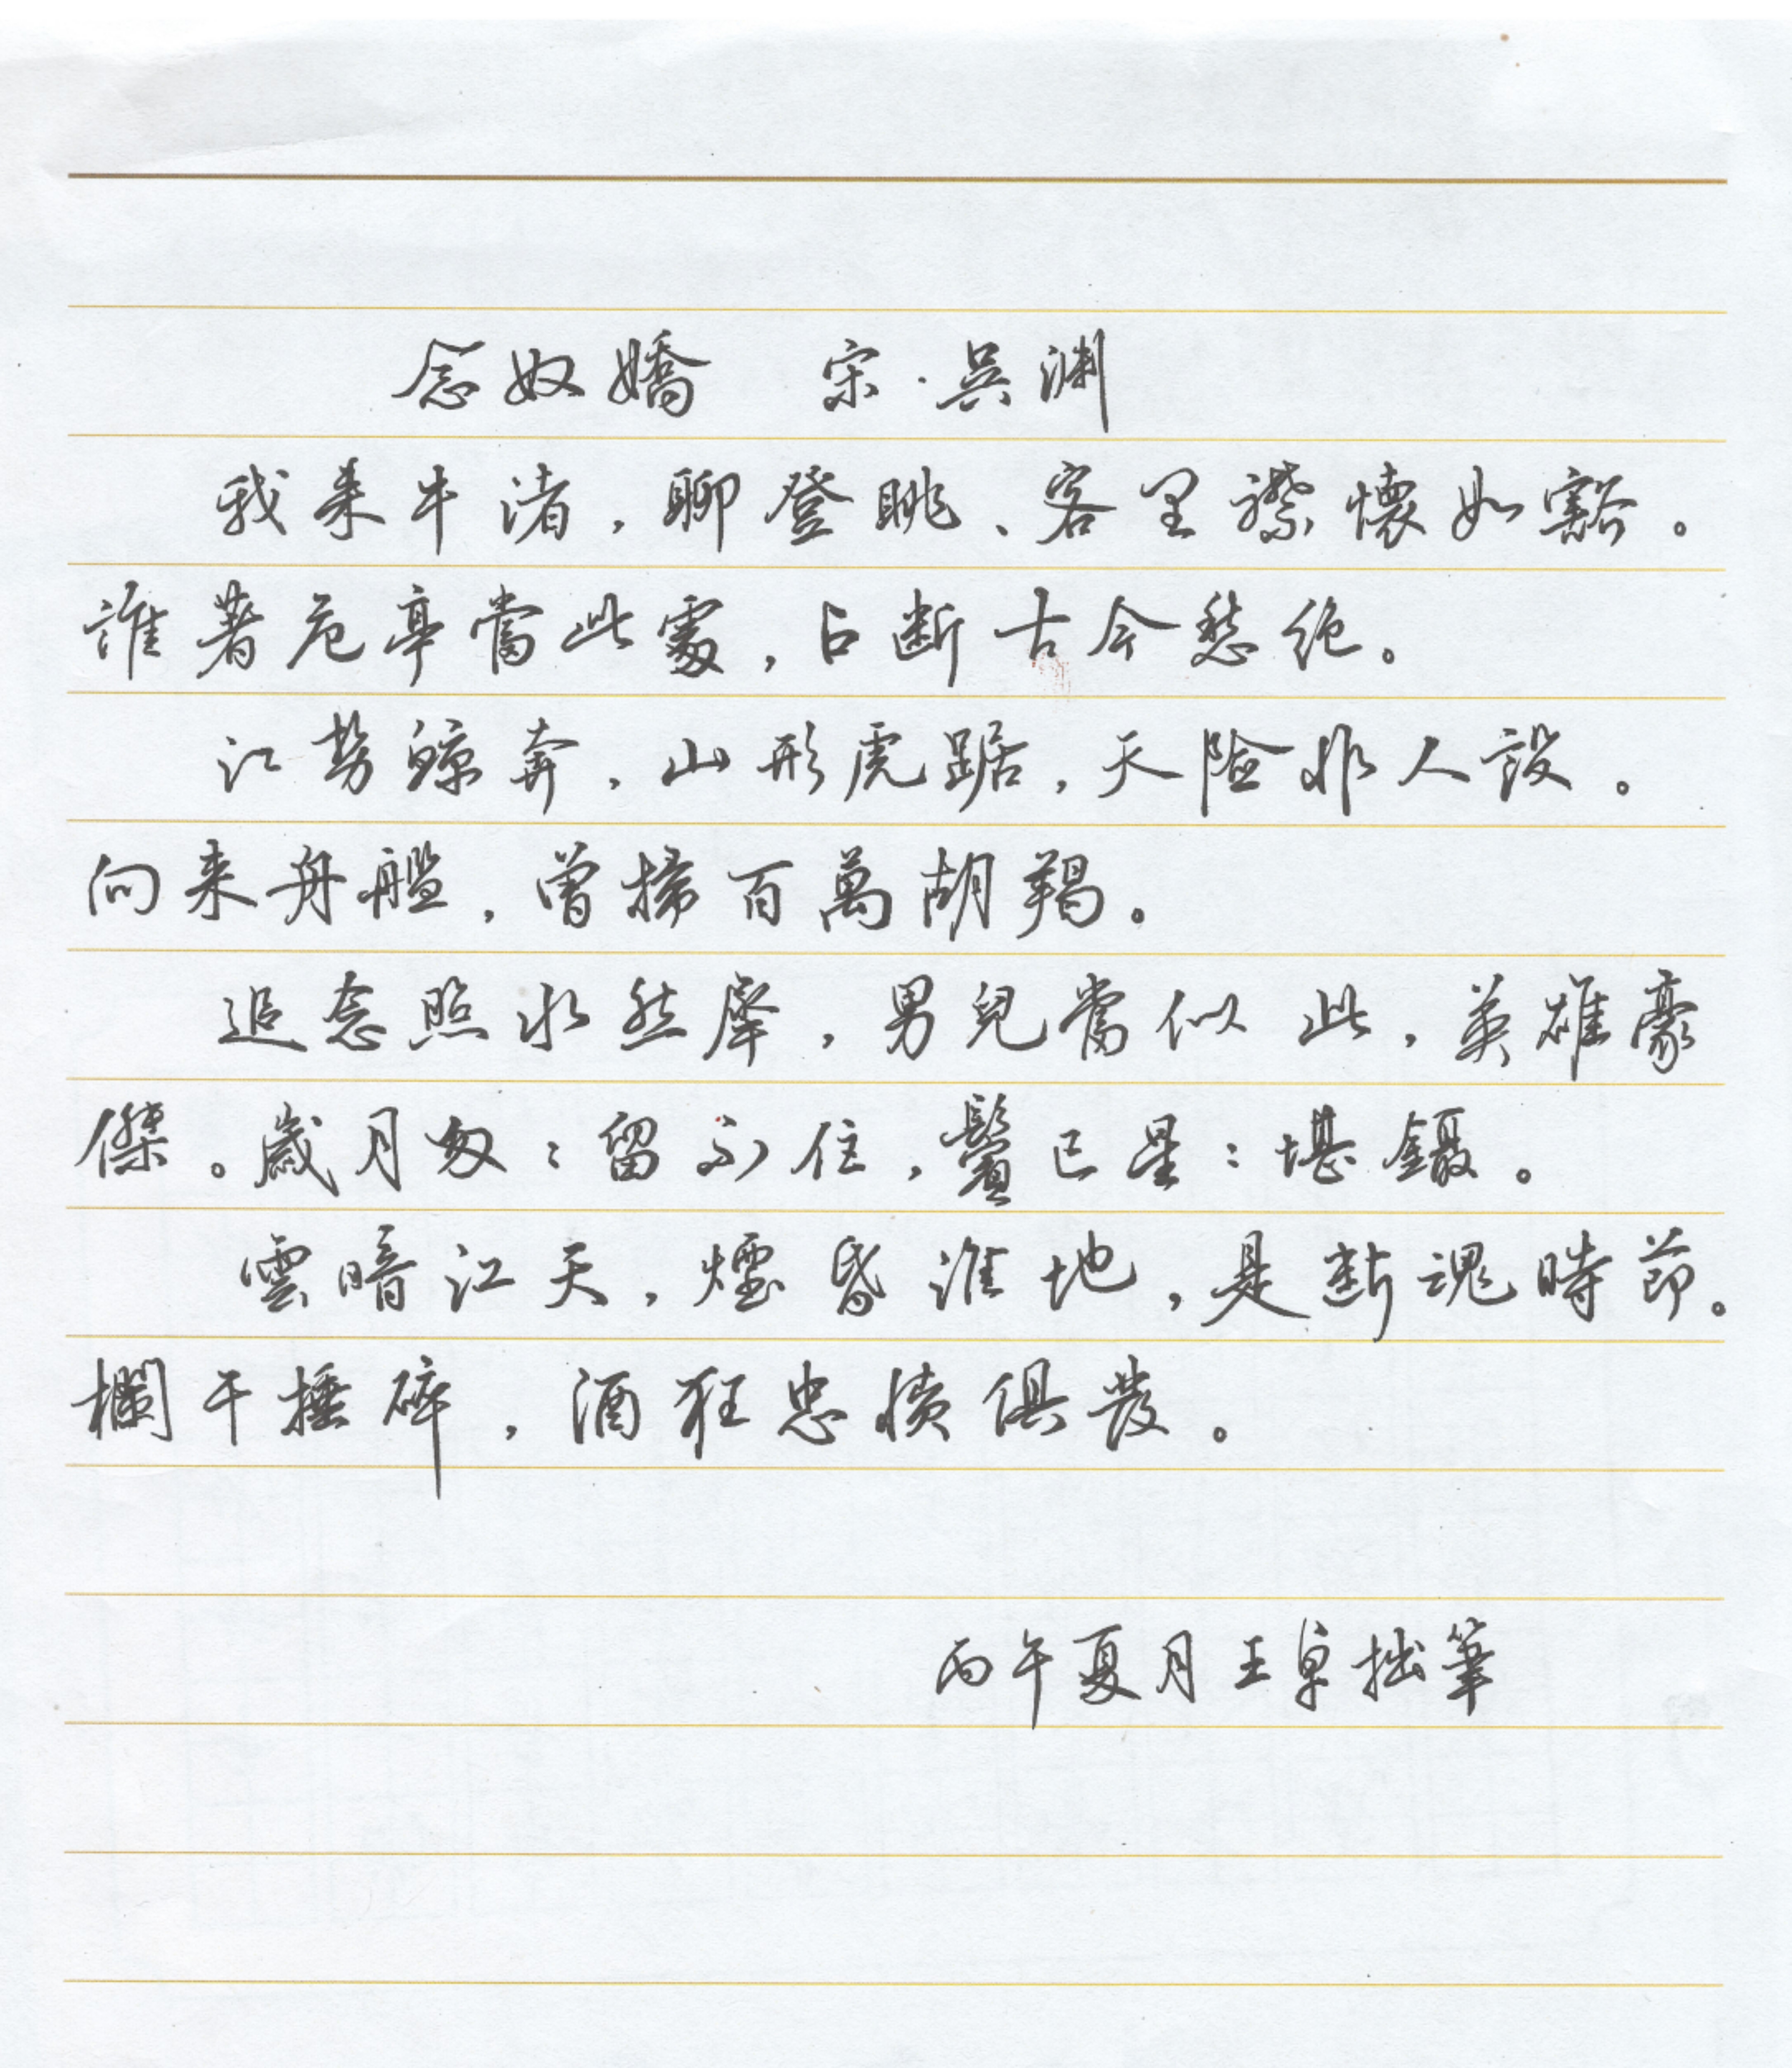 念奴嬌 宋·吳渊
我来牛渚,聊登眺、客里襟懷如豁。
誰著危亭當此處,占断古今愁绝。
江势鲸奔,山形虎踞,天险非人設。
向来舟艦,曾掃百萬胡羯。
追念照水然犀,男兒當似此,英雄豪
傑。歲月匆:留不住,鬢已星:堪鑷。
雲暗江天,煙昏淮地,是断魂時節。
欄干捶碎,酒狂忠憤俱发。
丙午夏月王卓拙筆